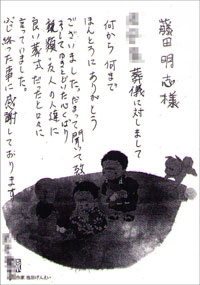 藤田明志様
葬儀に対しまして
何から何まで
ほんとうにありがとう
ございました。だまって聞いて致
そしてゆきとどいた心くばり
親類・友人の人達に
良い葬式だったと口々に
言っていました。
心に終った事に感謝しております